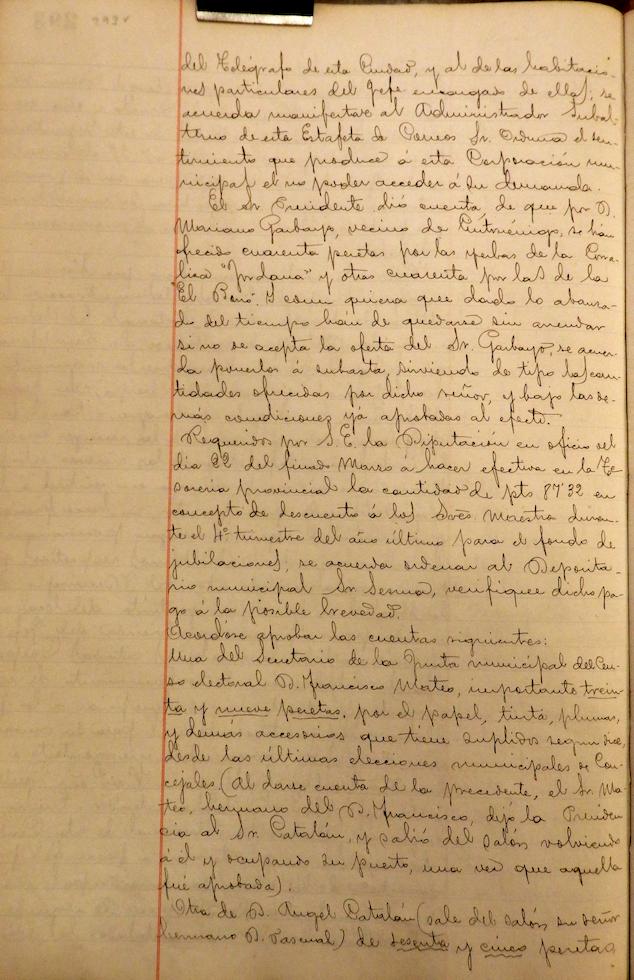 del Telégrafo de esta Ciudad, y al de las habitacio-
nes particulares del Jefe encargado de ellas; se
acuerda manifestar al Administrador Subal-
terno de esta Estafeta de Correos Sr. Orduna el sen-
timiento que produce á esta Corporación mu-
nicipal el no poder acceder á su demanda.
El Sr. Presidente dió cuenta de que por D.
Mariano Garbayo, vecino de Cintruénigo, se han
ofrecido cuarenta pesetas por las yerbas de la Corra-
liza "Jordana" y otras cuarenta por las de la
"El Bono". Y como quiera que dado lo abanza-
do del tiempo hán de quedarse sin arrendar
si no se acepta la oferta del Sr. Garbayo, se acuer-
da ponerlos á subasta, sirviendo de tipo las can-
tidades ofrecidas por dicho señor, y bajo las de-
más condiciones yá aprobadas al efecto.
Requeridos por S.E. la Diputación en oficio del
día 22 del finado Marzo á hacer efectiva en la Te-
sorería provincial la cantidad de pts 87'32 en
concepto de descuento á los Sres Maestros duran-
te el 4º trimestre del año último para el fondo de
jubilaciones, se acuerda ordenar al Deposita-
rio municipal Sr. Sesma, verifique dicho pa-
go á la posible brevedad.
Acordóse aprobar las cuentas siguientes:
Una del Secretario de la Junta municipal del Cen-
so electoral D. Francisco Mateo, importante trein-
ta y nueve pesetas, por el papel, tinta, plumas,
y demás accesorios que tiene suplidos segun dice,
desde las últimas elecciones municipales de Con-
cejales. (Al darse cuenta de la precedente, el Sr. Ma-
teo, hermano del D. Francisco, dejó la Presiden-
cia al Sr. Catalán, y salió del salón volviendo
á él y ocupando su puesto, una vez que aquella
fué aprobada).
Otra de D. Angel Catalán (sale del salón su señor
hermano D. Pascual) de sesenta y cinco pesetas